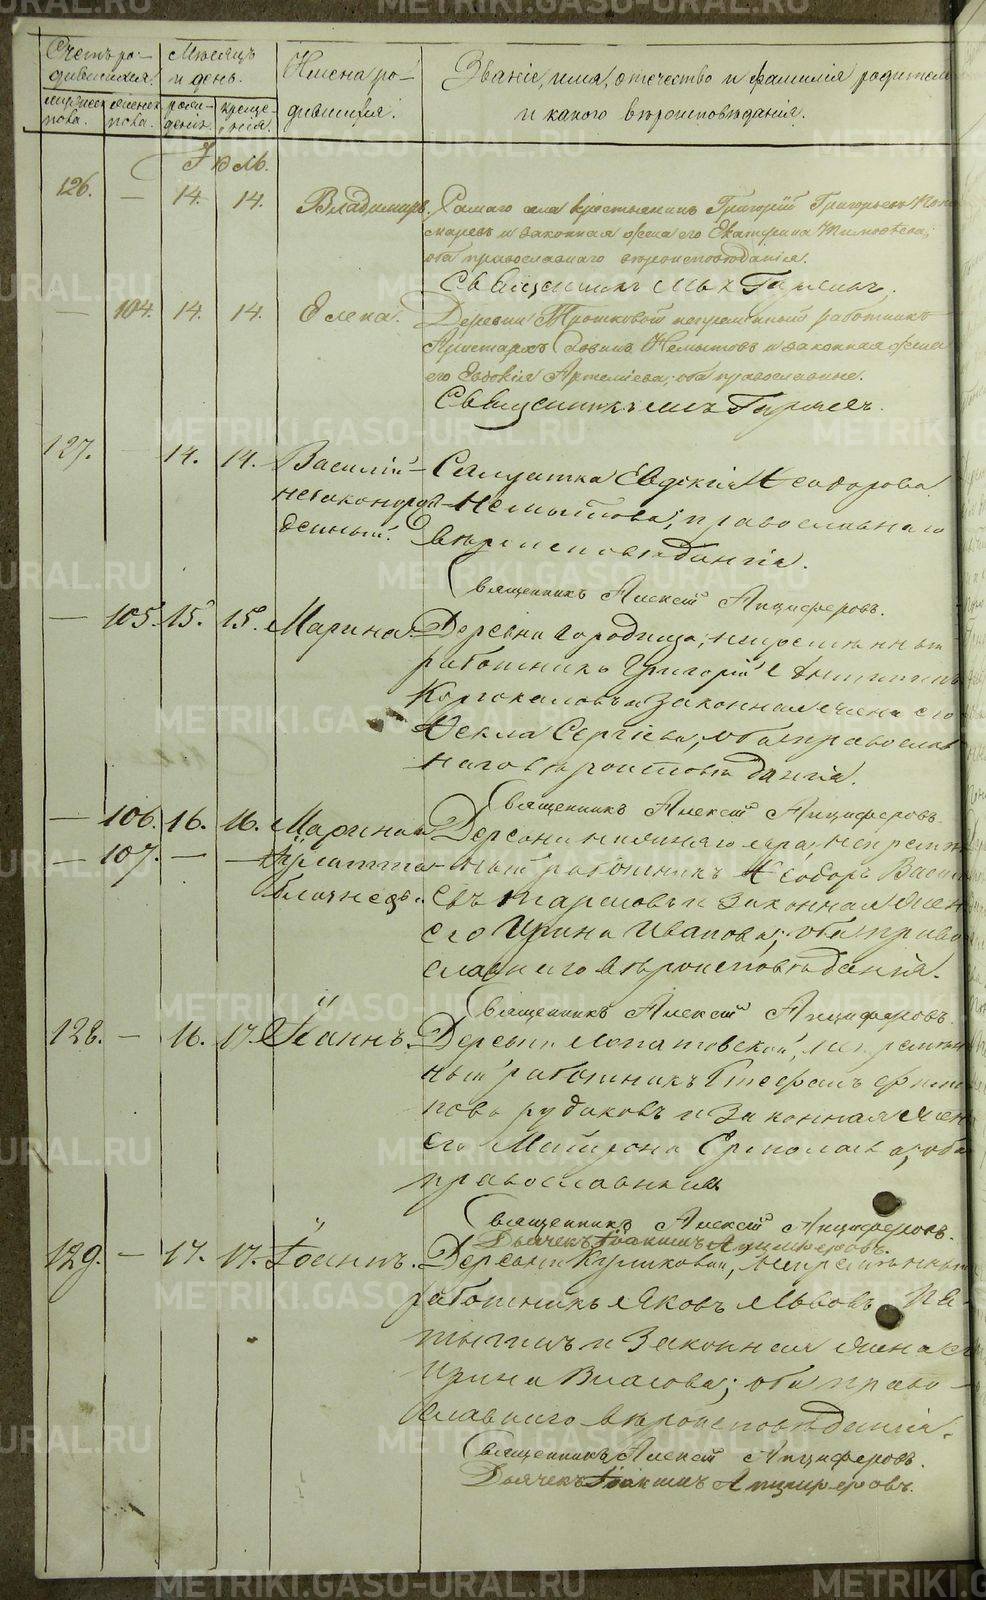 Счетъ ро-
дившихся.
Мѣсяцъ
и день.
Имена ро-
дившихся.
Званіе, имя, отечество и фамилія родителей
и какого вѣроисповѣданія.
мужеска
пола.
женска
пола.
рож-
денія.
креще-
нія.
Іюль.
126. — 14. 14. Владимиръ. Самаго села крестьянинъ Григорій Григорьевъ
и законная жена его Екатерина Тимоѳеева;
оба православнаго вѣроисповѣданія.
Священникъ Гаряевъ.
— 104. 14. 14. Елена. Деревни Трошковой непремѣнный работникъ
Аристархъ Немытовъ и законная жена
его Евдокія Артеміева; оба православные.
Священникъ Гаряевъ.
127. — 14. 14. Василій Солдатка Евдокія Ѳеодорова
незаконорож- Немытова; православнаго
денный. вѣроисповѣданія.
Священникъ Алексій Анциферовъ.
— 105. 15. 15. Марина. Деревни Городища, непремѣнный
работникъ Григорій
и законная жена его
Ѳекла Сергіева, оба православ
наго вѣроисповѣданія.
Священникъ Алексій Анциферовъ.
— 106. 16. 16. Марина и Деревни непремѣн
— 107. — — Іулитта ный работникъ Ѳеодоръ Васи
близнецы. евъ и законная жен
его Ирина Иванова; оба право
славнаго вѣроисповѣданія.
Священникъ Алексій Анциферовъ.
128. — 16. 17. Іоаннъ. Деревни Лопатовской, непремѣн
ный работникъ Стефанъ Филип
повъ Рудаковъ и законная жен
его Матрона Ермолаева; оба
православныя.
Священникъ Алексій Анциферовъ.
Дьячекъ Іоакимъ Анциферовъ.
129. — 17. 17. Іоаннъ. Деревни Куликовой, непремѣнный
работникъ Яковъ Львовъ Пя-
тыгинъ и законная жена е
Ирина Власова; оба право-
славнаго вѣроисповѣданія.
Священникъ Алексій Анциферовъ.
Дьячекъ Іоакимъ Анциферовъ.
METRIKI.GASO-URAL.RU